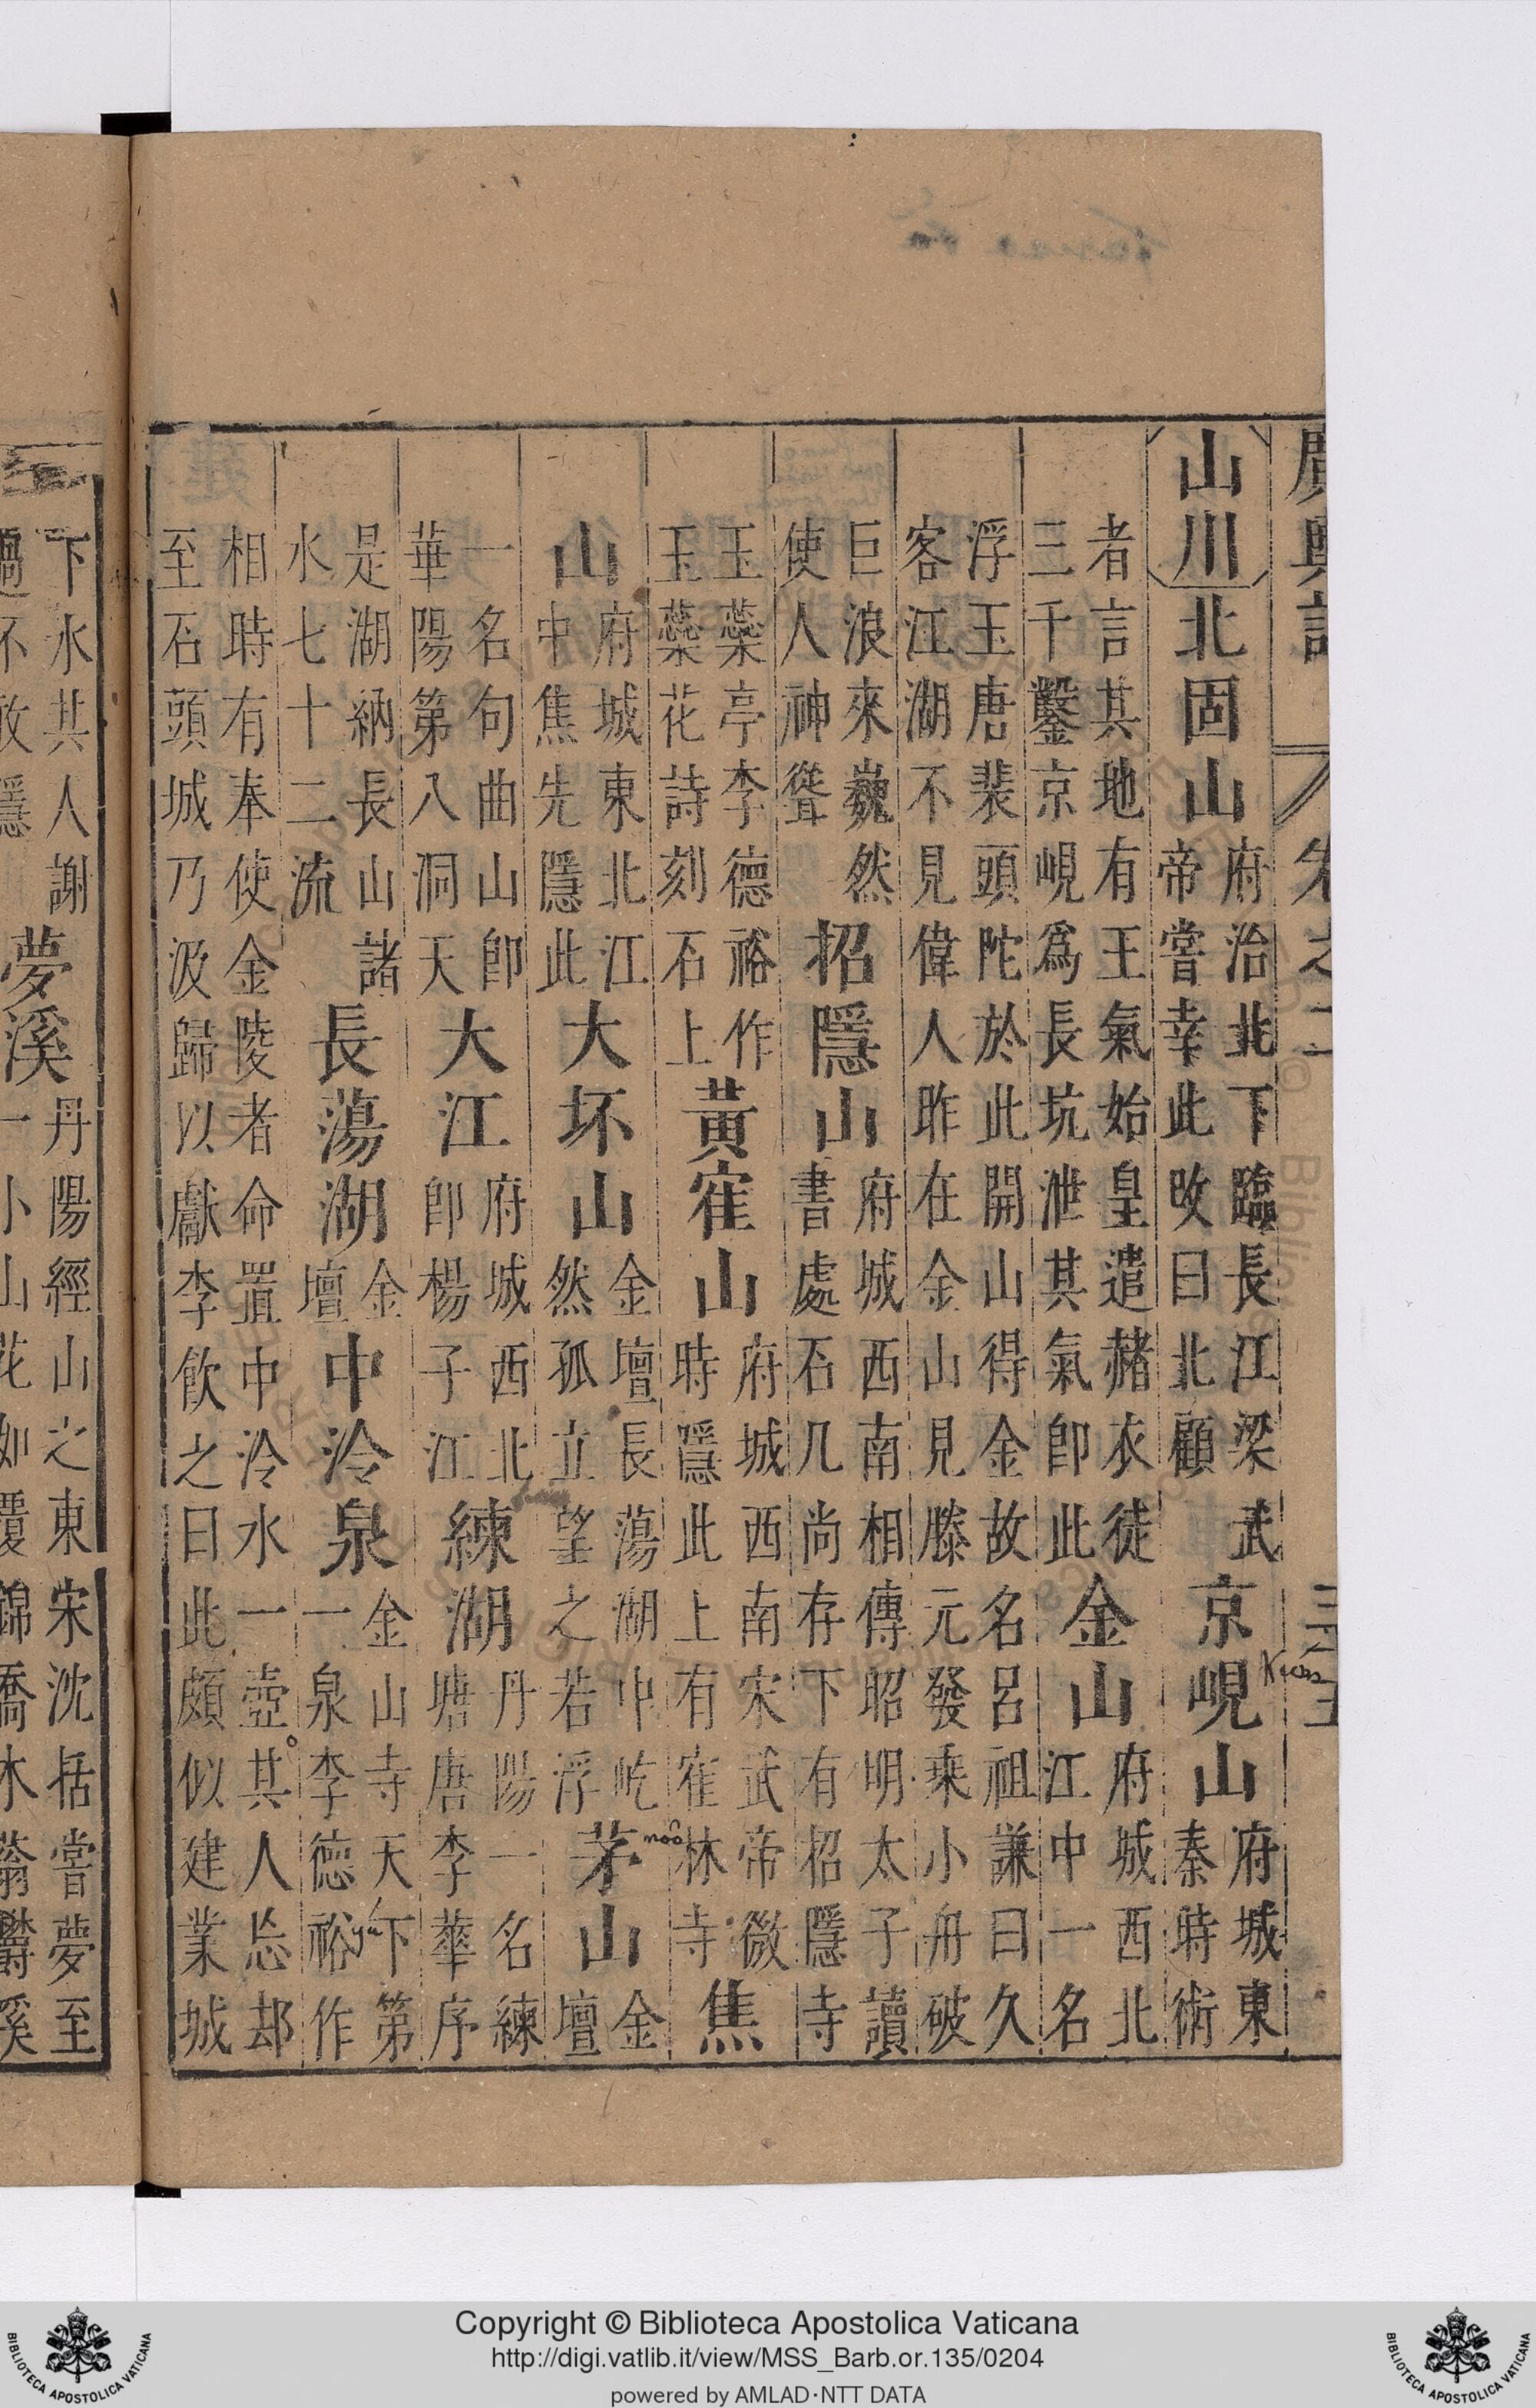 廣輿記 卷之二 三十五
山川 北固山 府治北下臨長江梁武帝嘗幸此改曰北顧 京峴山 府城東秦時術
者言其地有王氣始皇遣赭衣徒三千鑿京峴爲長坑泄其氣卽此 金山 府城西北江中一名
浮玉唐裴頭陀於此開山得金故名呂祖謙曰久客江湖不見偉人昨在金山見滕元發乘小舟破
巨浪來巍然使人神聳 招隱山 府城西南相傳昭明太子讀書處石几尚存下有招隱寺
玉蘂亭李德裕作玉蘂花詩刻石上 黃㝛山 府城西南宋武帝微時隱此上有㝛林寺 焦
山 府城東北江中焦先隱此 大坯山 金壇長蕩湖中屹然孤立望之若浮 茅山 金壇
一名句曲山卽華陽第八洞天 大江 府城西北卽楊子江 練湖 丹陽一名練塘唐李華序
是湖納長山諸水七十二流 長蕩湖 金壇 中泠泉 金山寺天下第一泉李德裕作
相時有奉使金陵者命置中泠水一壺其人忘却至石頭城乃汲歸以獻李飲之曰此頗似建業城
下水其人謝過不敢隱 夢溪 丹陽經山之東宋沈括嘗夢至一小山花如覆錦喬木蓊鬱溪
Kien
mao
yu
Copyright © Biblioteca Apostolica Vaticana
http://digi.vatlib.it/view/MSS_Barb.or.135/0204
powered by AMLAD·NTT DATA
BIBLIOTECA APOSTOLICA VATICANA
BIBLIOTECA APOSTOLICA VATICANA